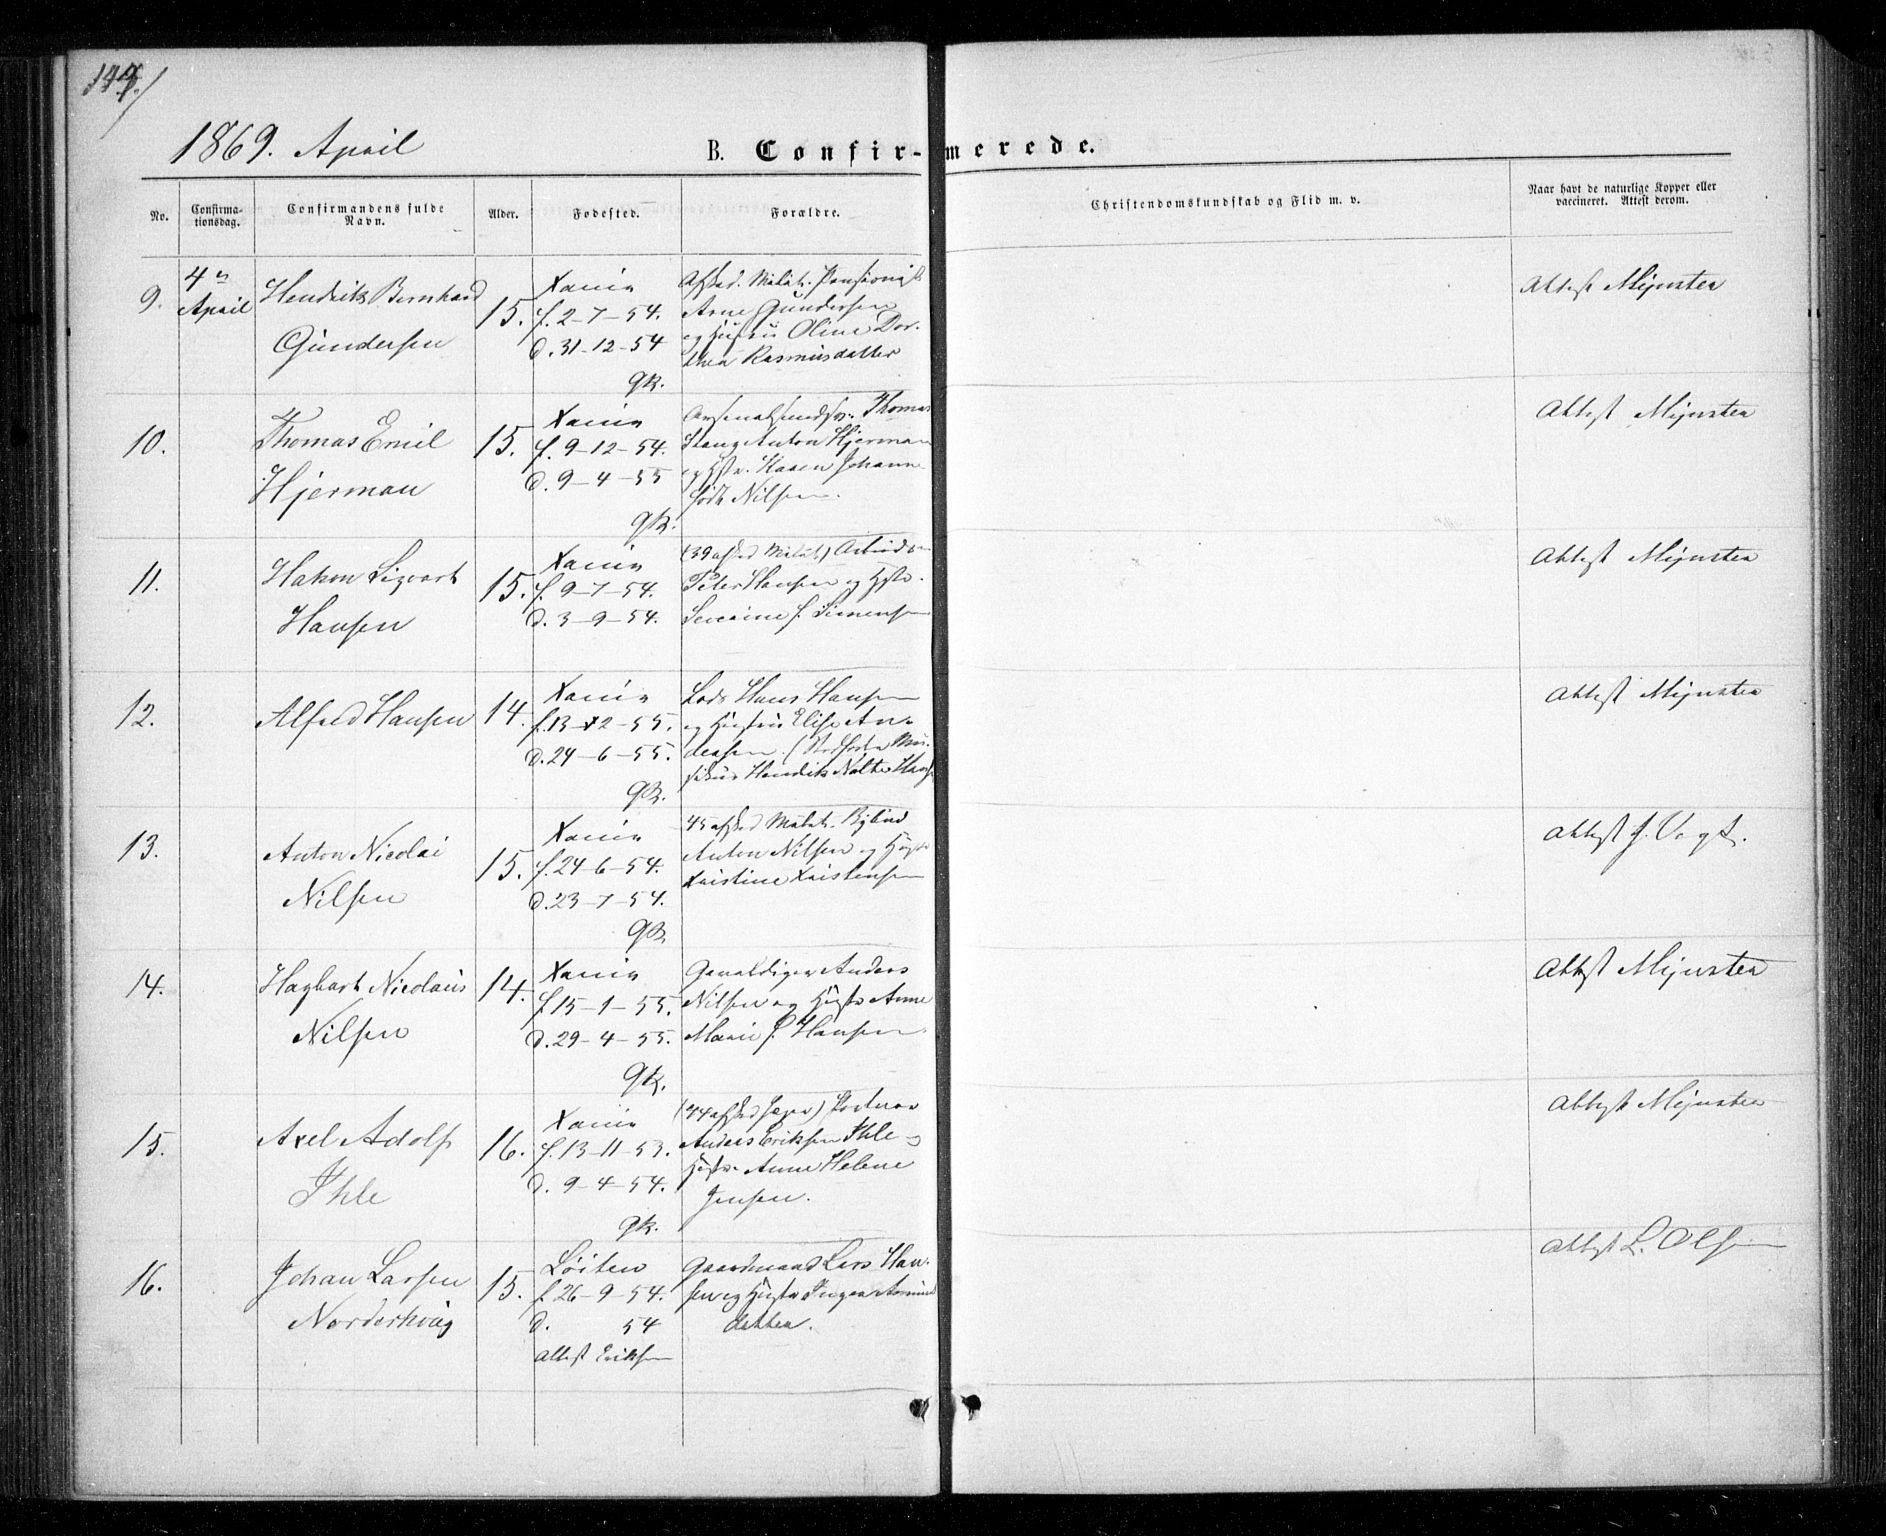 1869. April
B. Confirmerede.
No.
Confirma-
tionsdag.
Confirmandens fulde
Navn.
Alder.
Fødested.
Forældre.
Christendomskundskab og Flid m. v.
Naar havt de naturlige Kopper eller
vaccineret. Attest derom.
9.
4de
April
Hendrik Bernhard
Gundersen
15.
Xania
f. 2-7-54.
d. 31-12-54
gk.
Afsked. Milit. Pensionist
Arne Gundersen
og Hustru Oline Dor-
thea Rasmusdatter
Attest Mijnster
10.
Thomas Emil
Hjerman
15.
Xania
f. 9-12-54.
d. 9-4-55
gk.
Thomas
Stang Anton Hjerman
og Hstr. Karen Johanne
født Nilsen.
Attest Mijnster
11.
Hakon Sigvart
Hansen
15.
Xania
f. 9-7-54.
d. 3-9-54.
(39 afsked Milit) Arbeidsm
Peter Hansen og Hstr.
Severine f. Simensen
Attest Mijnster
12.
Alfred Hansen
14.
Xania
f. 13-2-55.
d. 24-6-55.
gk.
Lods Hans Hansen
og Hustru Elise An-
dersen. (Stedfader Mu-
sikus Hendrik Nolte Hansen
Attest Mijnster
13.
Anton Nicolai
Nilsen
15.
Xania
f. 24-6-54.
d. 23-7-54.
gk.
45 afsked Milit. Bybud
Anton Nilsen og Hust
Kristine Kristensen
Attest J. Vogt.
14.
Hagbart Nicolaus
Nilsen
14.
Xania
f. 15-1-55.
d. 29-4-55.
gk.
Gevaldiger Anders
Nilsen og Hustr Anne
Marie f. Hansen
Attest Mijnster
15.
Axel Adolf
Ihle
16.
Xania
f. 13-11-53.
d. 9-4-54.
gk.
(44 afsked Jæger)
Anders Eriksen Ihle og
Hustr. Anne Helene
Jensen.
Attest Mijnster
16.
Johan Larsen
Norderhoug
15.
Løiten
f. 26-9-54.
d. 54
Attest Eriksen
Gaardmand Lars Han-
sen og Hustr Inger Amund
datter.
Attest L. Olsen